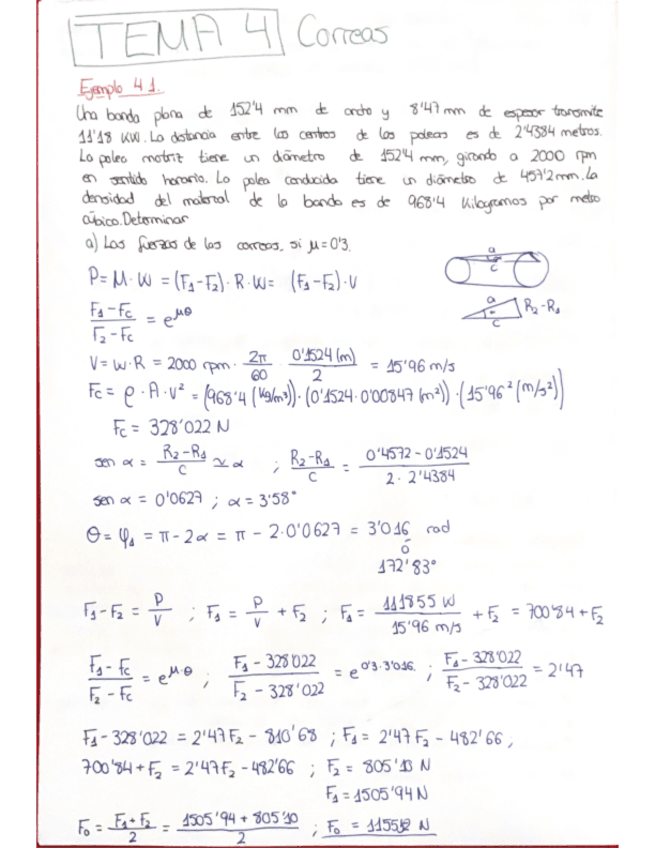 TEMA 4 Correas
Ejemplo 4 1.
Una banda plana de 152'4 mm de ancho y 8'47 mm de espesor transmite
11'18 KW. La distancia entre los centros de las poleas es de 2'4384 metros.
La polea motriz tiene un diámetro de 152'4 mm, girando a 2000 rpm
en sentido horario. La polea conducida tiene un diámetro de 457'2 mm. La
densidad del material de la banda es de 968'4 Kilogramos por metro
cúbico. Determinar
a) Las fuerzas de las correas, si μ = 0'3.
a
c
P = M · W = (F1 - F2) · R · W = (F1 - F2) · V
a
R2 - R1
c
F1 - Fc / F2 - Fc = e^μθ
V = W · R = 2000 rpm · 2π/60 · 0'1524 (m)/2 = 15'96 m/s
Fc = ρ · A · v² = (968'4 (Kg/m³)) · (0'1524 · 0'00847 (m²)) · (15'96² (m/s²))
Fc = 328'022 N
sen α = R2 - R1 / c ≃ α ; R2 - R1 / c = 0'4572 - 0'1524 / 2 · 2'4384
sen α = 0'0627 ; α = 3'58°
θ = φ1 = π - 2α = π - 2·0'0627 = 3'016 rad
ó
172'83°
F1 - F2 = P/V ; F1 = P/V + F2 ; F1 = 11185'5 W / 15'96 m/s + F2 = 700'84 + F2
F1 - Fc / F2 - Fc = e^μ·θ ; F1 - 328'022 / F2 - 328'022 = e^0'3·3'016 ; F1 - 328'022 / F2 - 328'022 = 2'47
F1 - 328'022 = 2'47 F2 - 810'68 ; F1 = 2'47 F2 - 482'66 ;
700'84 + F2 = 2'47 F2 - 482'66 ; F2 = 805'10 N
F1 = 1505'94 N
F0 = F1 + F2 / 2 = 1505'94 + 805'10 / 2 ; F0 = 1155'52 N